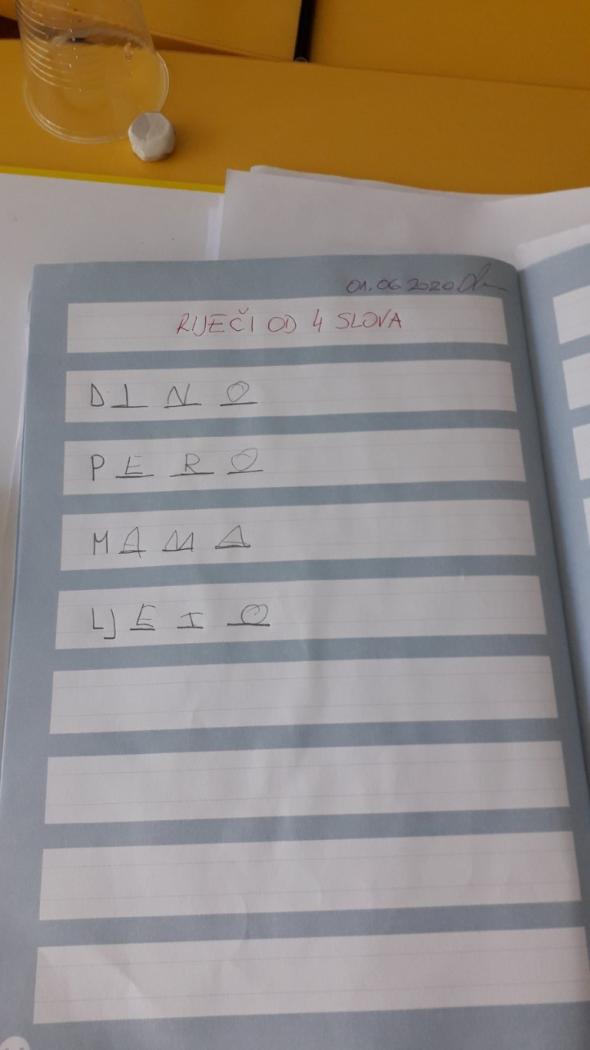 01.06.2020
RIJEČI OD 4 SLOVA
D I N O
P E R O
M A M A
LJ E I O